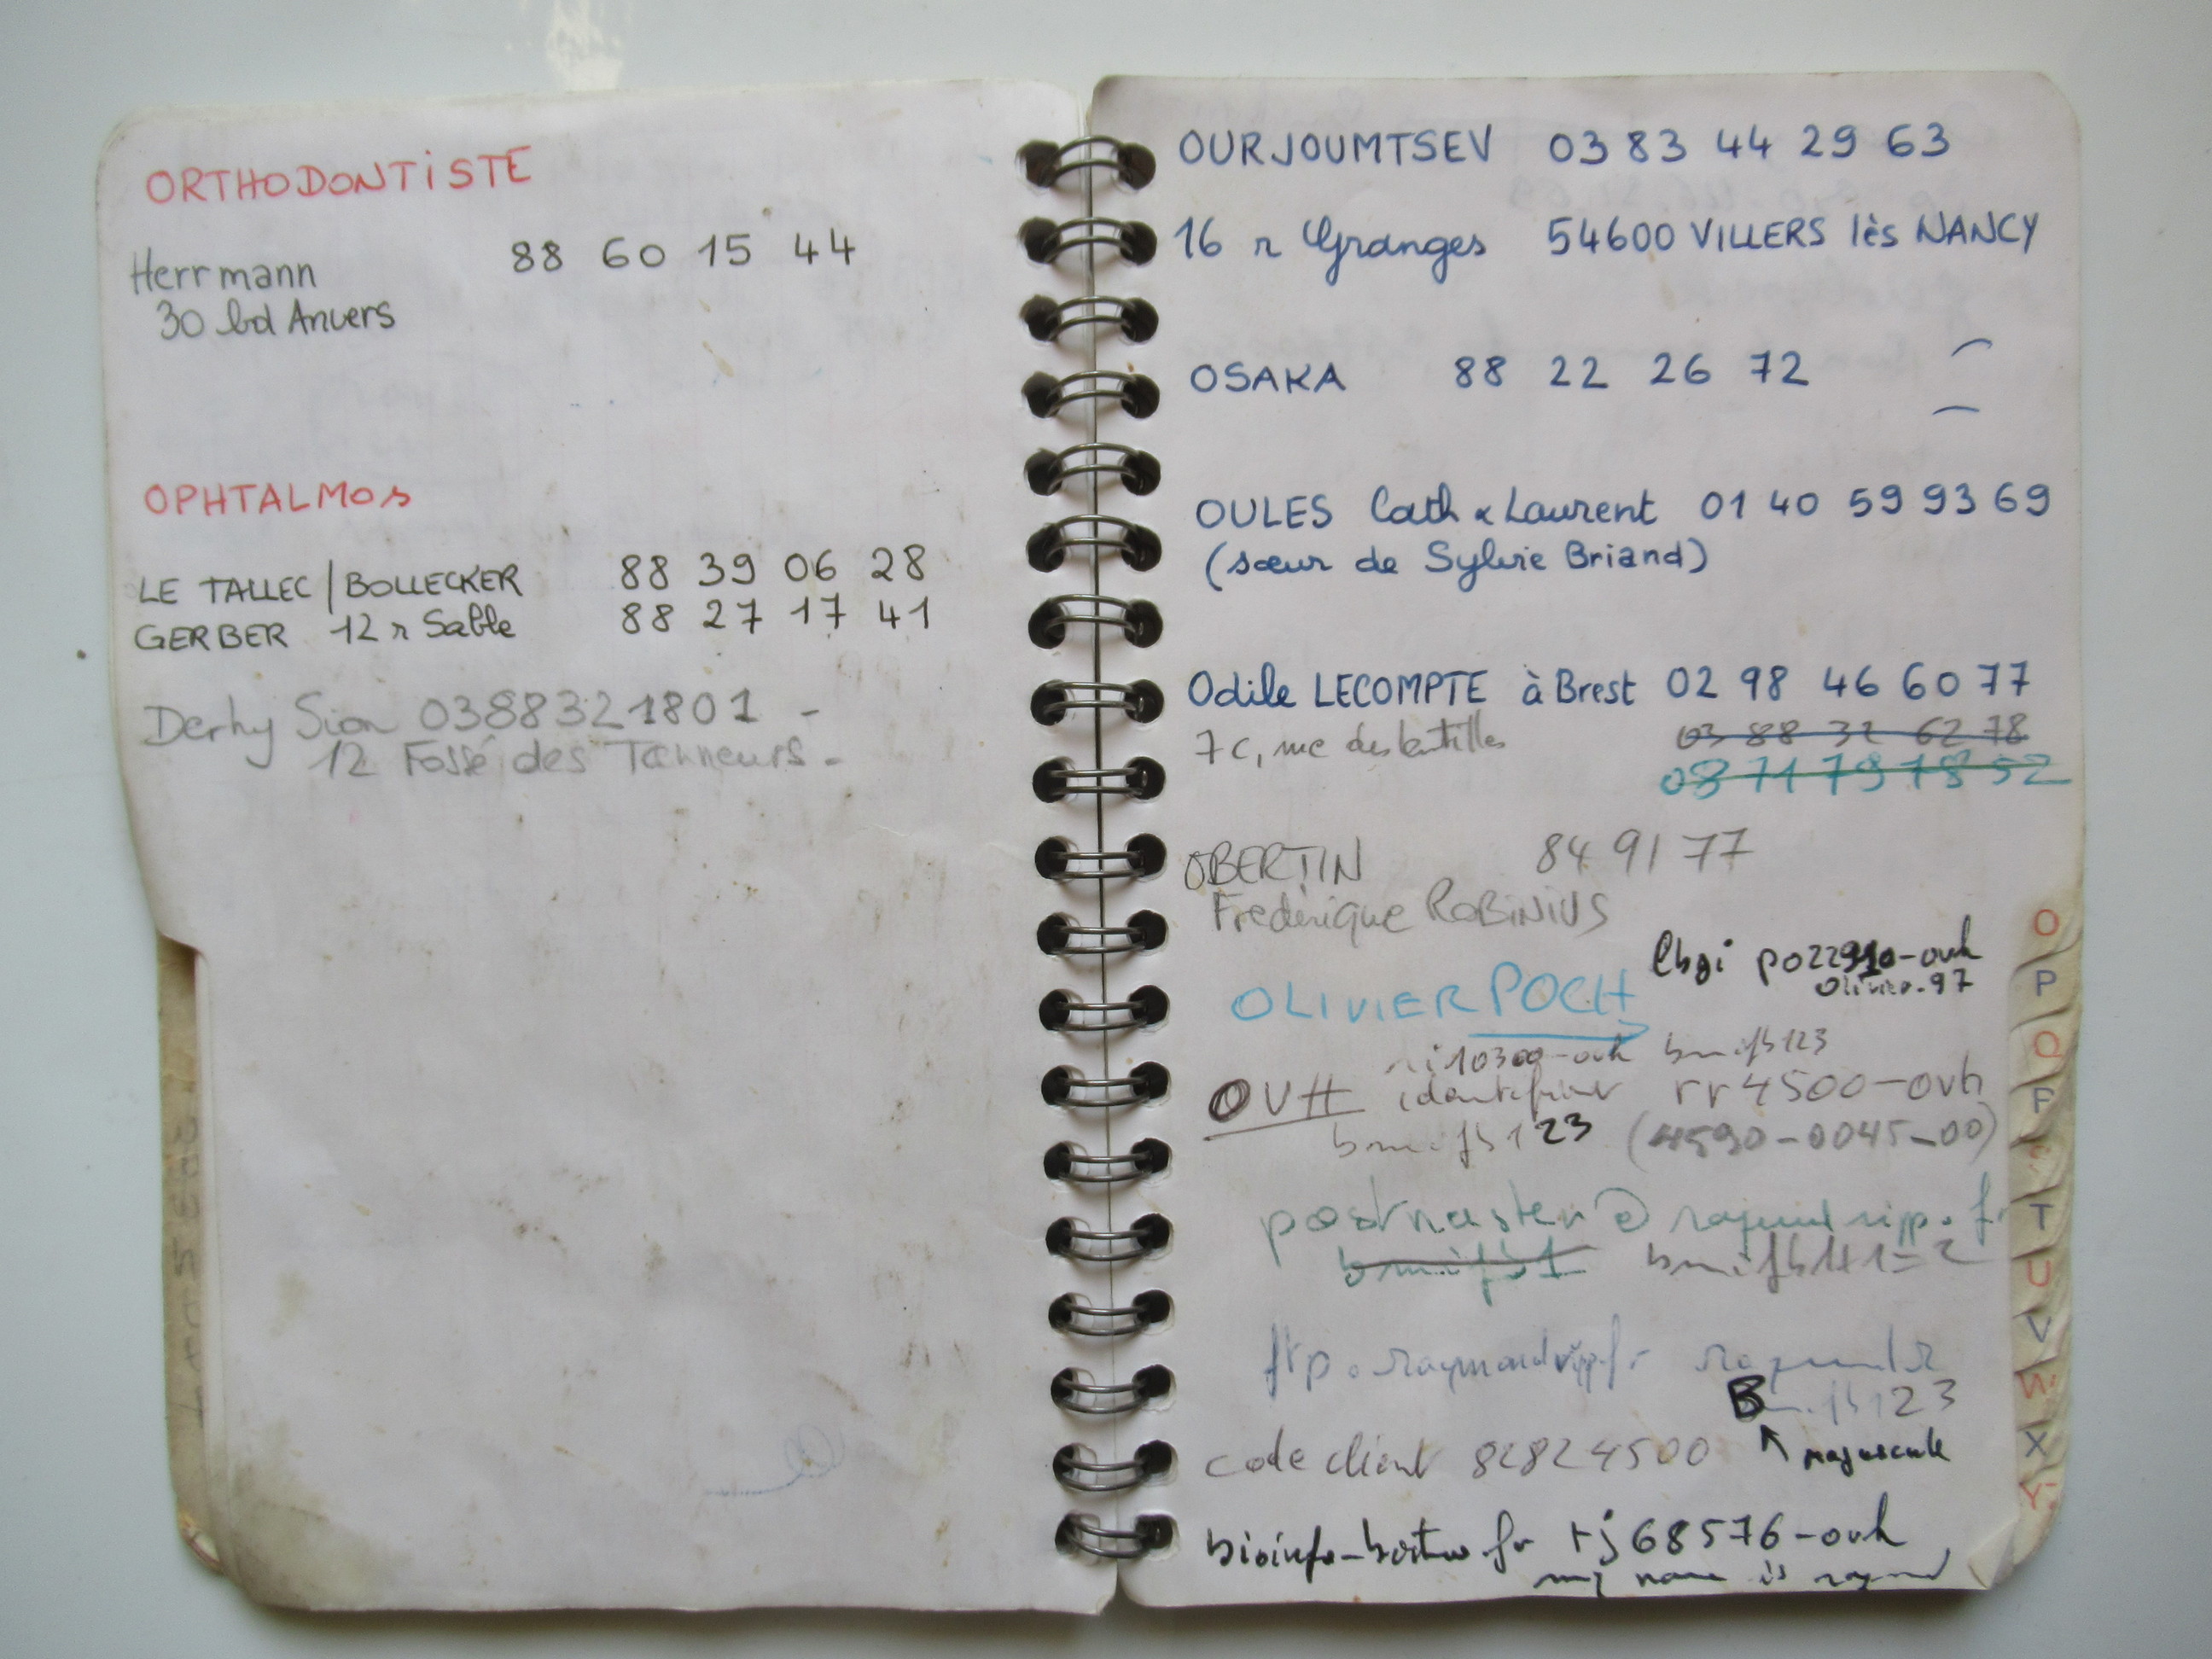 ORTHODONTiSTE
Herrmann 88 60 15 44
30 bd Anvers
OPHTALMOS
LE TALLEC / BOLLECKER 88 39 06 28
GERBER 12 r Sable 88 27 17 41
Derhy Sion 0388321801 -
12 Fossé des Tanneurs -
OURJOUMTSEV 03 83 44 29 63
16 r Granges 54600 VILLERS lès NANCY
OSAKA 88 22 26 72
OULES Cath & Laurent 01 40 59 93 69
(sœur de Sylvie Briand)
Odile LECOMPTE à Brest 02 98 46 60 77
7c, rue des lentilles 03 88 32 62 78
03 71 79 78 52
OBERTIN 84 91 77
Frédérique ROBINIUS
lbgi po22910-ovh
OLIVIER POCH Olivier.97
10300-ovh bmifb123
OVH identifiant rr4500-ovh
bmifb123 (4590-0045-00)
postmaster@raymondripp.fr
bmifb1 bmifb1+1=2
ftp.raymondripp.fr raymondr
Bmifb123
code client 82824500 majuscule
bioinfo-bostus.fr rj68576-ovh
my name is raymond